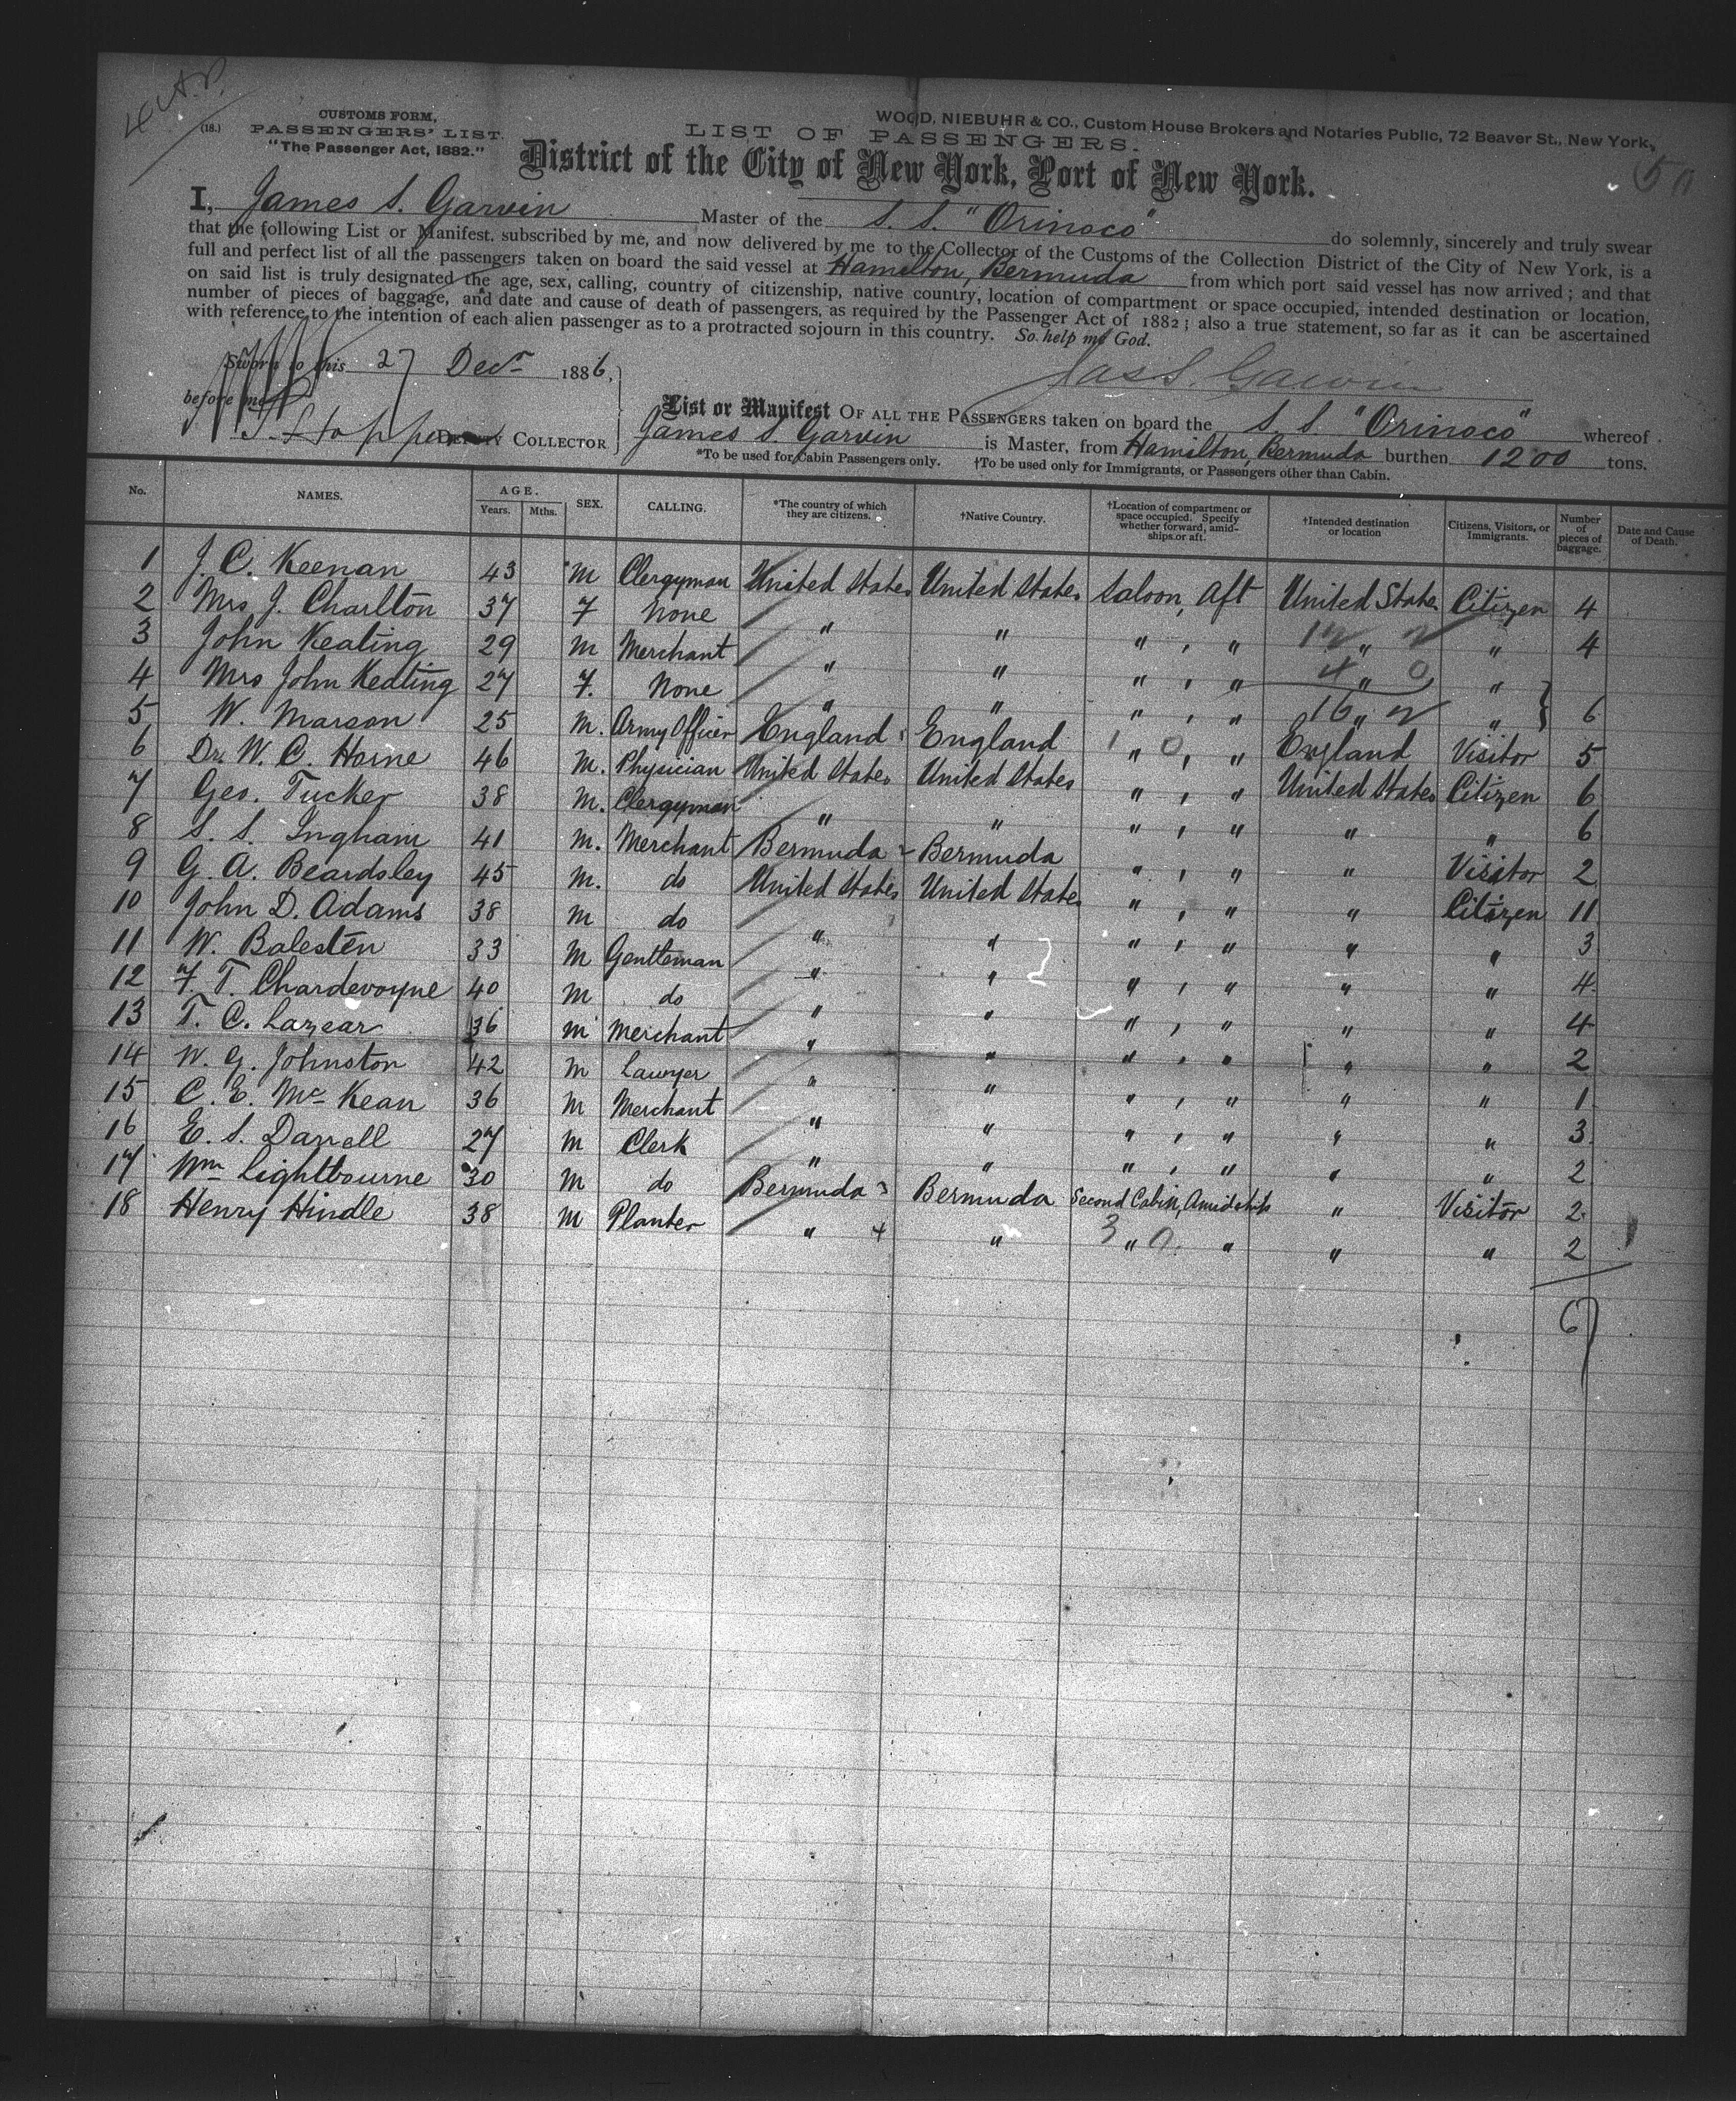 4 A.P.
(18.)
CUSTOMS FORM,
PASSENGERS' LIST.
"The Passenger Act, 1882."
WOOD, NIEBUHR & CO., Custom House Brokers and Notaries Public, 72 Beaver St., New York,
LIST OF PASSENGERS.
District of the City of New York, Port of New York.
I, James S. Garvin Master of the S. S. "Orinoco" do solemnly, sincerely and truly swear
that the following List or Manifest, subscribed by me, and now delivered by me to the Collector of the Customs of the Collection District of the City of New York, is a
full and perfect list of all the passengers taken on board the said vessel at Hamilton, Bermuda from which port said vessel has now arrived; and that
on said list is truly designated the age, sex, calling, country of citizenship, native country, location of compartment or space occupied, intended destination or location,
number of pieces of baggage, and date and cause of death of passengers, as required by the Passenger Act of 1882; also a true statement, so far as it can be ascertained
with reference to the intention of each alien passenger as to a protracted sojourn in this country. So help me God.
Sworn to this 27 Decr 1886,
Jas S. Garvin
before me
DEPUTY COLLECTOR
List or Manifest OF ALL THE PASSENGERS taken on board the S. S. "Orinoco" whereof
James S. Garvin is Master, from Hamilton, Bermuda burthen 1200 tons.
*To be used for Cabin Passengers only. †To be used only for Immigrants, or Passengers other than Cabin.
No. NAMES. AGE. Years. Mths. SEX. CALLING. *The country of which they are citizens. †Native Country. †Location of compartment or space occupied. Specify whether forward, amidships or aft. †Intended destination or location Citizens, Visitors, or Immigrants. Number of pieces of baggage. Date and Cause of Death.
1 J. C. Keenan 43 M Clergyman United States United States Saloon, Aft United States Citizen 4
2 Mrs J. Charlton 37 F None " " " , " " " 4
3 John Keating 29 M Merchant " " " , " " "
4 Mrs John Keating 27 F. None " " " , " " " } 6
5 W. Marson 25 M. Army Officer England England " , " England Visitor 5
6 Dr. W. C. Horne 46 M. Physician United States United States " , " United States Citizen 6
7 Geo. Tucker 38 M. Clergyman " " " , " " " 6
8 S. S. Ingham 41 M. Merchant Bermuda Bermuda " , " " Visitor 2
9 G. A. Beardsley 45 M. do United States United States " , " " Citizen 11
10 John D. Adams 38 M do " " " , " " " 3
11 W. Balesten 33 M Gentleman " " " , " " " 4
12 F. T. Chardevoyne 40 M do " " " , " " " 4
13 T. C. Lazear 36 M Merchant " " " , " " " 2
14 W. G. Johnston 42 M Lawyer " " " , " " " 1
15 C. E. Mc Kean 36 M Merchant " " " , " " " 3
16 E. S. Darrell 27 M Clerk " " " , " " " 2
17 Wm Lightbourne 30 M do Bermuda Bermuda Second Cabin, Amidships " Visitor 2
18 Henry Hindle 38 M Planter " " " " " " 2
67